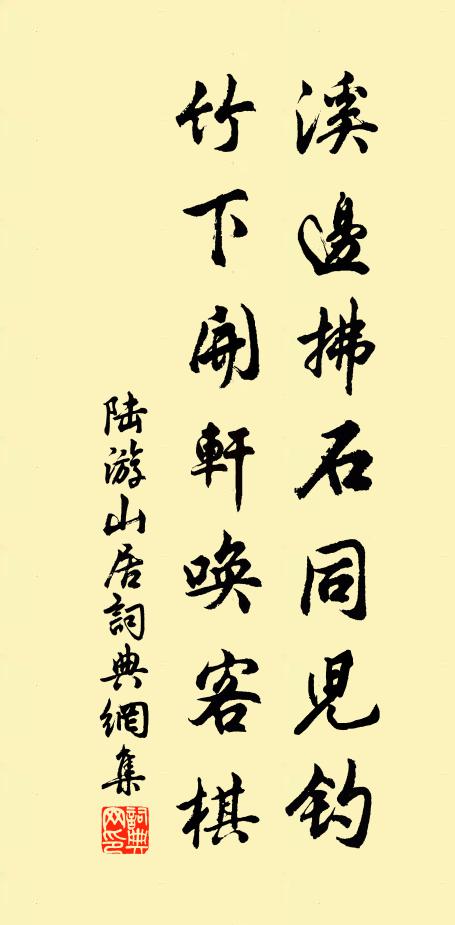 溪邊拂石同兒釣
竹下開軒喚客棋
陆游山居詞典網集
詞典
网印